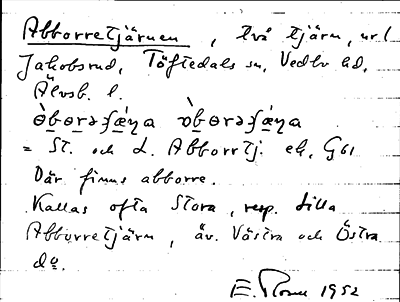 Abborretjärnen, två tjärn, ur l
Jakobsrud, Töftedals sn, Vedbo hd,
Älvsb. l.
ò̀bɵrəʃæ̀ṇa ɒ̀bɵrəʃæ̀ṇa
= St. och L. Abborrtj. ek, G61
Där finns abborre.
Kallas ofta Stora, resp. Lilla
Abborretjärn, äv. Västra och Östra
do.
E. 1952